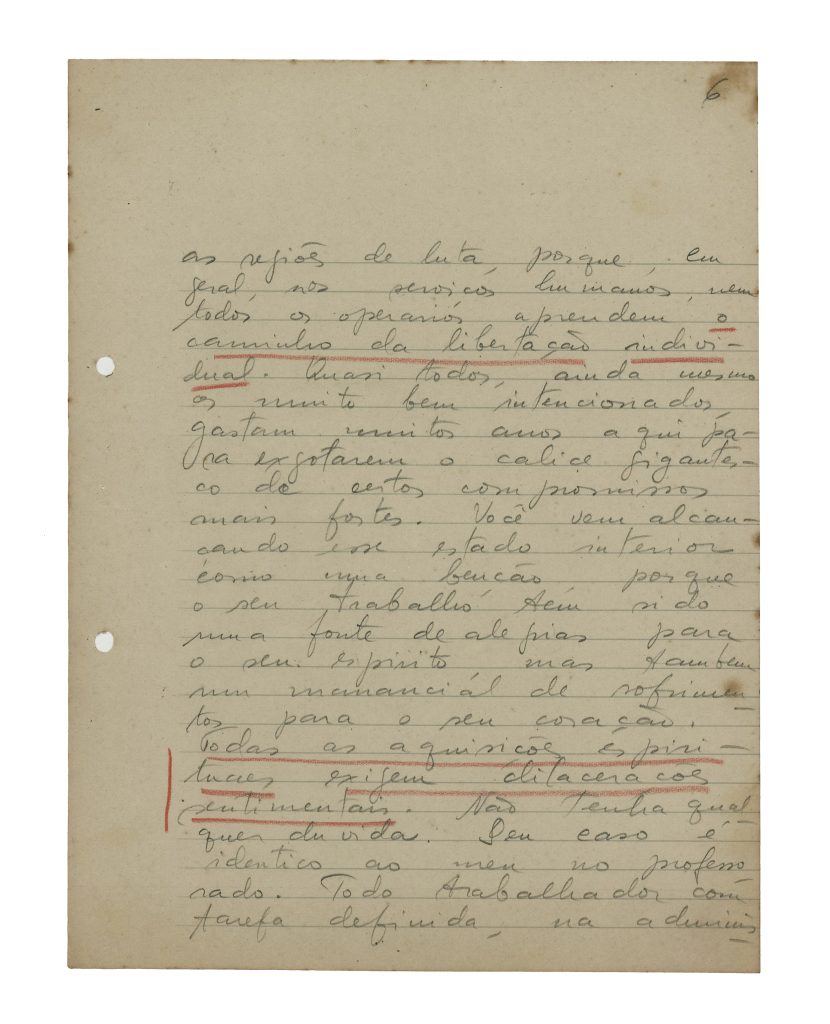 6
as regiões de luta, porque, em
geral, nos serviços humanos, nem
todos os operarios aprendem o
caminho da libertação indivi-
dual. Quasi todos, ainda mesmo
os muito bem intencionados,
gastam muitos anos aqui pa-
ra exgotarem o calice gigantes-
co de certos compromissos
mais fortes. Você vem alcan-
cando esse estado interior
como uma bencão, porque
o seu trabalho tem sido
uma fonte de alegias para
o seu espirito mas tambem
um mananciál de sofrimen-
tos para o seu coração.
Todas as aquisicões espiri-
tuaes exigem dilaceracões
sentimentais. Não tenha qual-
quer duvida. Seu caso é
identico ao meu no professo-
rado. Todo trabalhador com
tarefa definida, na adminis-